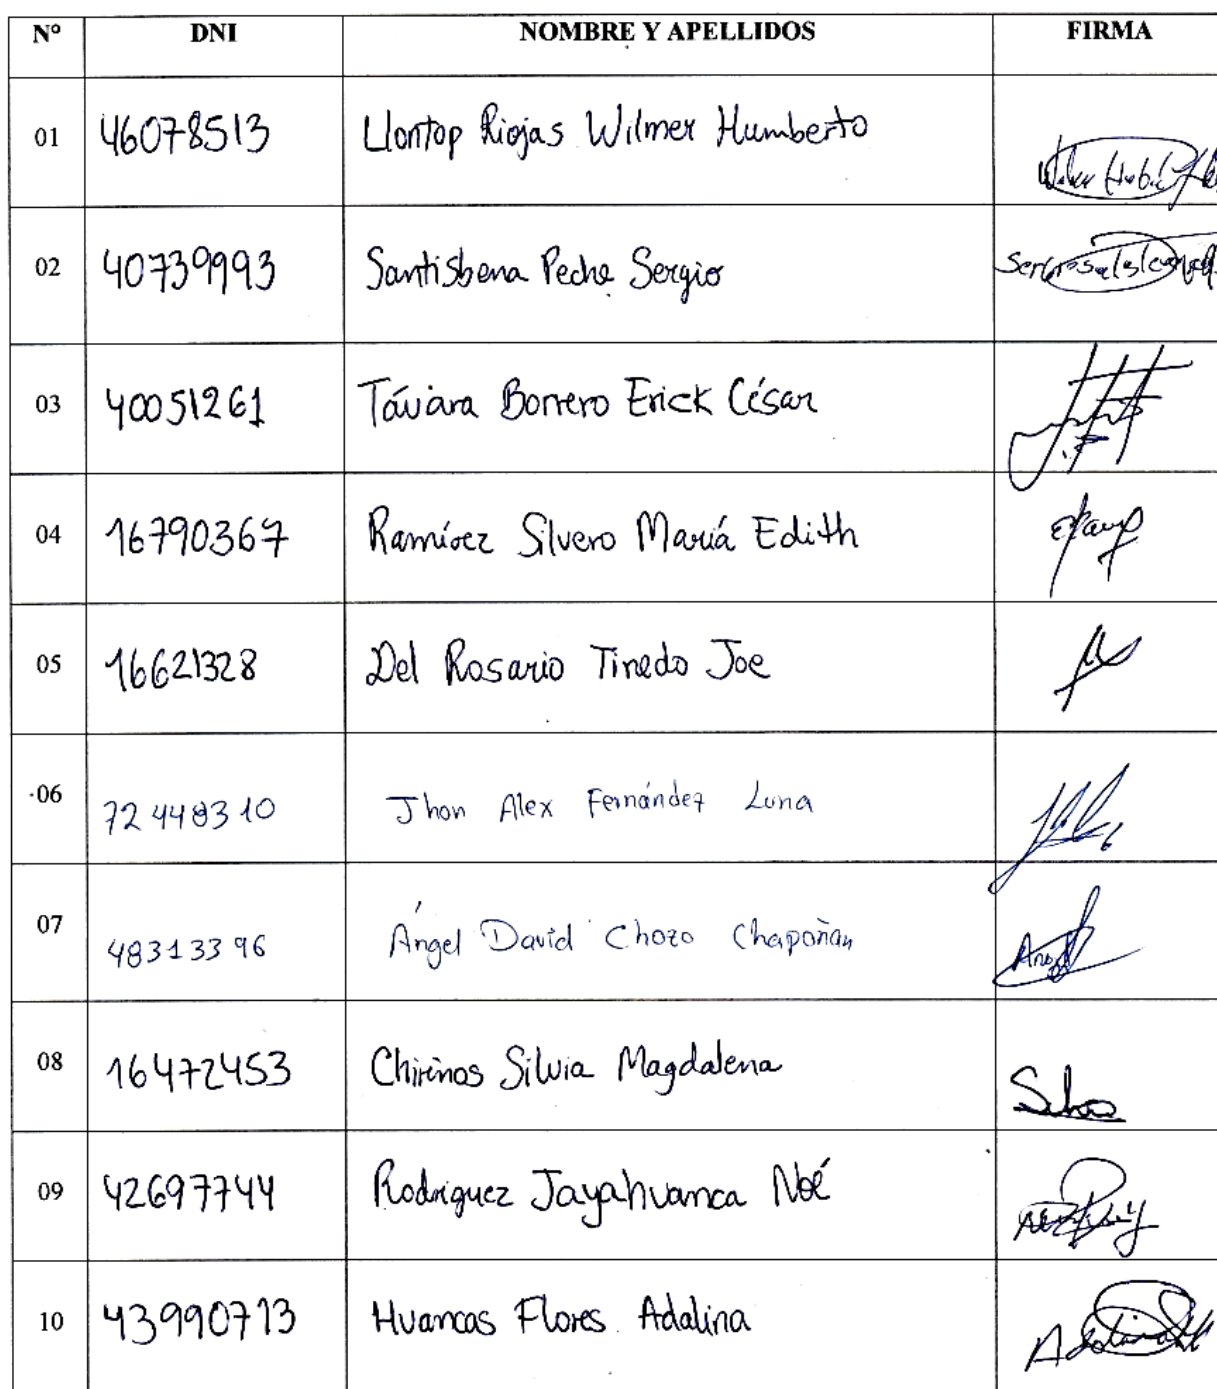 N° DNI NOMBRE Y APELLIDOS FIRMA
01 46078513 Llontop Riojas Wilmer Humberto
02 40739993 Santisbena Peche Sergio
03 40051261 Távara Borrero Erick César
04 16790367 Ramírez Silvero Mariá Edith
05 16621328 Del Rosario Tinedo Joe
06 72448310 Jhon Alex Fernández Luna
07 48313396 Ángel David Chozo Chapoñan
08 16472453 Chirinos Silvia Magdalena
09 42697744 Rodriguez Jayahuanca Noé
10 43990713 Huancas Flores Adalina